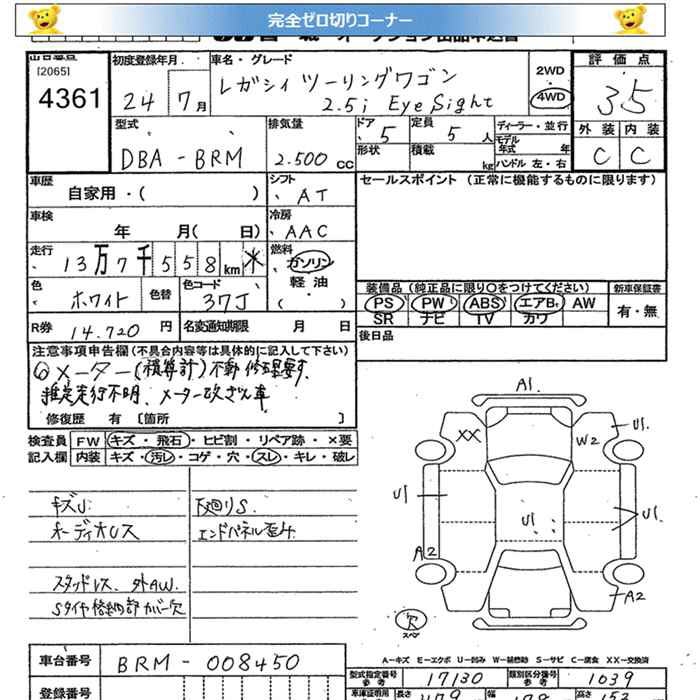 完全ゼロ切りコーナー
[2065]
4361
初度登録年月
24 7月
車名・グレード
レガシィ ツーリングワゴン
2.5i EyeSight
2WD
4WD
評価点
3.5
外装 内装
C C
型式
DBA - BRM
排気量
2.500 cc
ドア 5
定員 5 人
形状
積載 kg
ディーラー・並行
モデル年式 年
ハンドル 左・右
車歴
自家用・( )
シフト
AT
セールスポイント (正常に機能するものに限ります)
車検
年 月( 日)
冷房
AAC
走行
13万7千558km ※
燃料
ガソリン
軽油
( )
色
ホワイト
色替
色コード
37J
装備品 (純正品に限り○をつけてください)
PS PW ABS エアB AW
SR ナビ TV カワ
新車保証書
有・無
R券 14.720 円
名変通知期限 月 日
後日品
注意事項申告欄 (不具合内容等は具体的に記入して下さい)
メーター(積算計)不動 修理要す
推定走行不明、メーター改ざん車
修復歴 有 [箇所 ]
検査員 FW キズ・飛石・ヒビ割・リペア跡・×要
記入欄 内装 キズ・汚レ・コゲ・穴・スレ・キレ・破レ
キズU
オーディオレス
スタッドレス、外AW
Sタイヤ格納部カバー欠
下廻りS
エンドパネル歪み
A1
XX
W2
U1
U1
U1
U1
A2
A2
欠
スペア
A-キズ E-エクボ U-凹み W-補修跡 S-サビ C-腐食 XX-交換済
車台番号
BRM - 008450
型式指定番号
参考
17130
類別区分番号
参考
1039
登録番号
長さ
幅
高さ